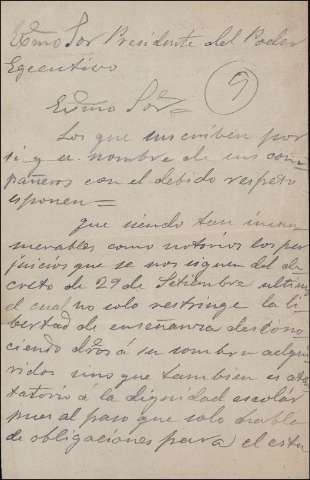 Exmo Sor Presidente del Poder
Egecutivo
Exmo Sor =
9
Los que suscriben por
si y a nombre de sus com-
pañeros con el debido respeto
esponen =
que siendo tan innu-
merables como notorios los per
juicios que se nos siguen del de
creto de 29 de Setiembre ultimo
el cual no solo restringe la li
bertad de enseñanza descono
ciendo dros á su sombra adqui
ridos sino que tambien es aten
tatorio a la dignidad escolar
pues al paso que solo habla
de obligaciones para el estu